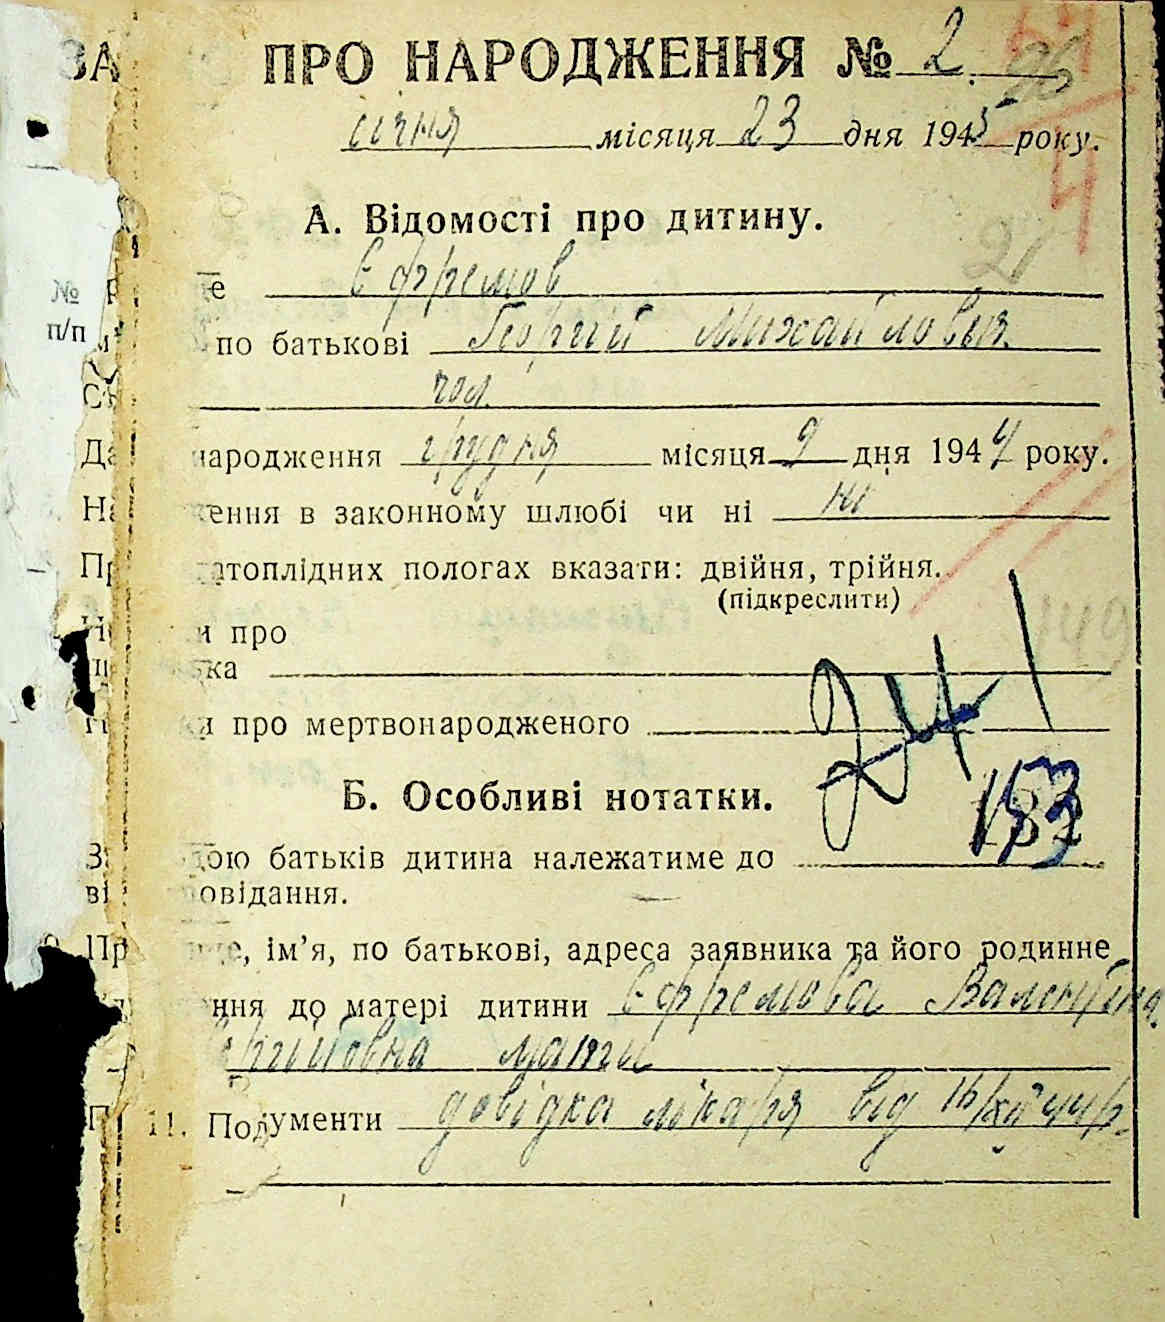 ЗА ПРО НАРОДЖЕННЯ № 2 26
січня місяця 23 дня 1945 року.
А. Відомості про дитину.
21
е Єфремов
№ п/п
по батькові Георгий Михайлович
Ст чол.
Да народження грудня місяця 9 дня 1944 року.
На ення в законному шлюбі чи ні ні
Пр атоплідних пологах вказати: двійня, трійня.
(підкреслити)
и про
ка
и про мертвонародженого
Б. Особливі нотатки.
153
З дою батьків дитина належатиме до
ві овідання.
Пр ще, ім’я, по батькові, адреса заявника та його родинне
ння до матері дитини Єфремова Валентина
мати
11. Документи довідка лікаря від 16/XII 44 р.